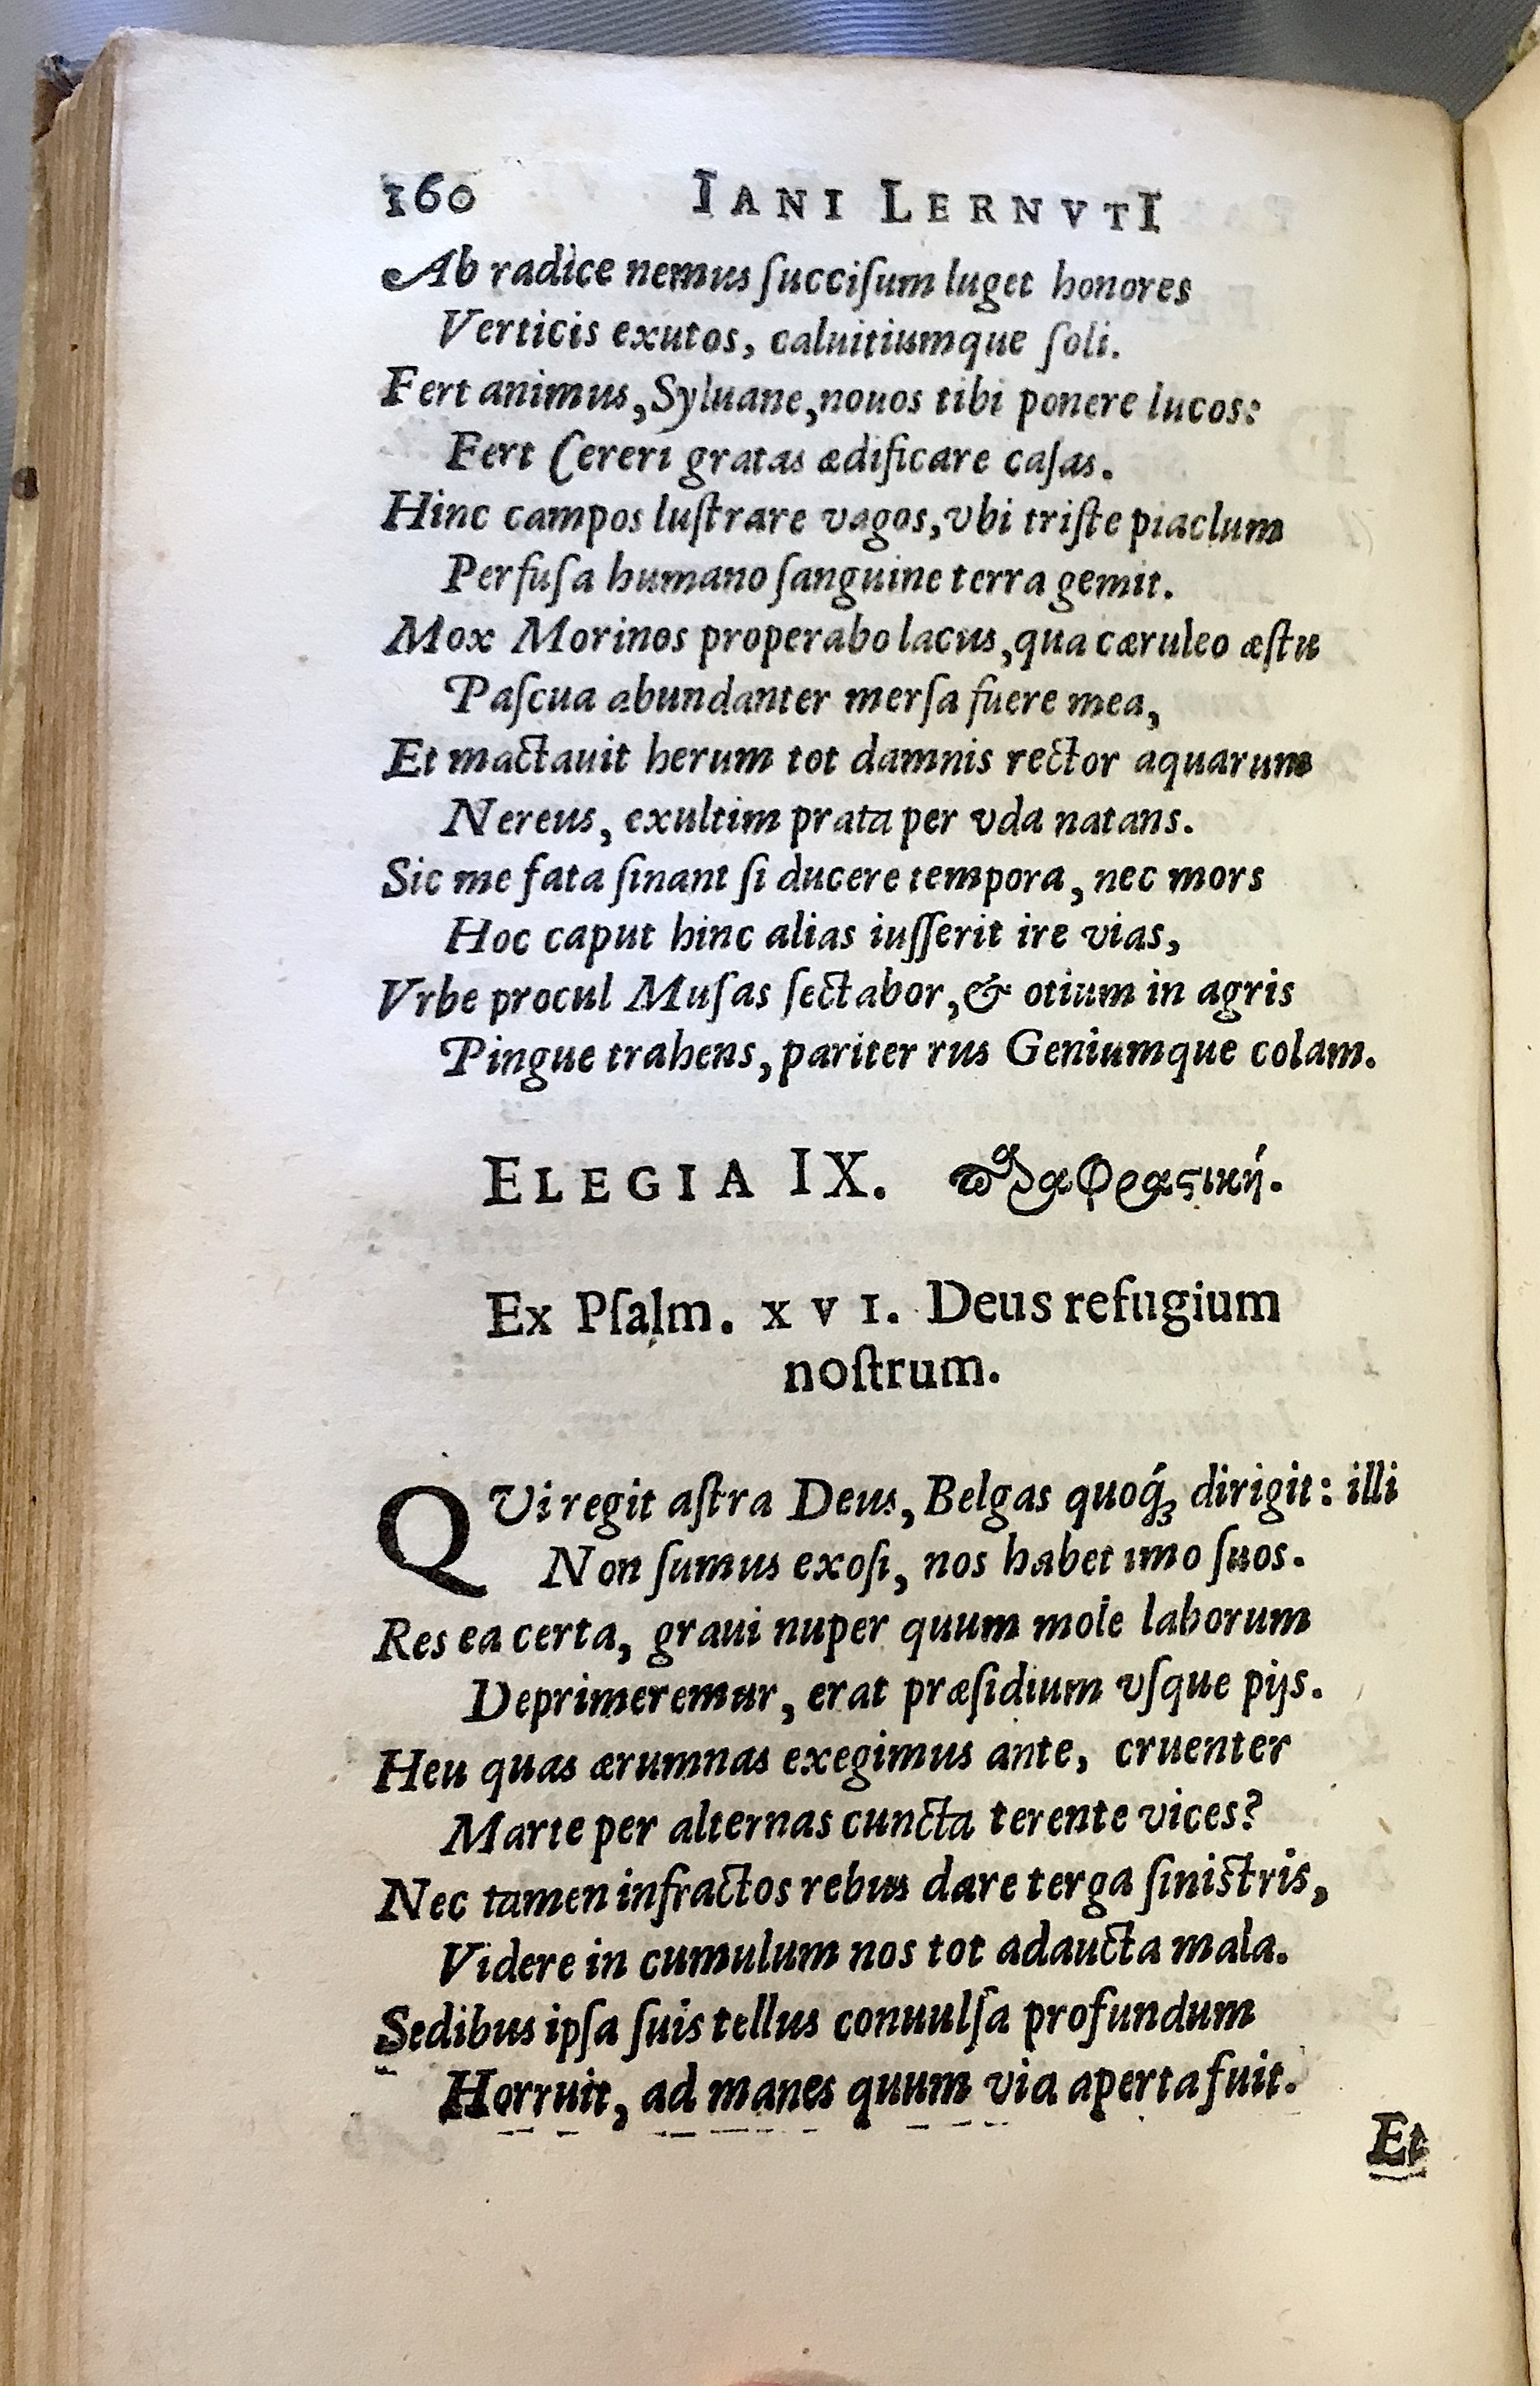 160 IANI LERNVTI
Ab radice nemus ſucciſum luget honores
Verticis exutos, caluitiumque ſoli.
Fert animus, Syluane, nouos tibi ponere lucos:
Fert Cereri gratas ædificare caſas.
Hinc campos luſtrare vagos, vbi triſte piaclum
Perfuſa humano ſanguine terra gemit.
Mox Morinos properabo lacus, qua cæruleo æſtu
Paſcua abundanter merſa fuere mea,
Et mactauit herum tot damnis rector aquarum
Nereus, exultim prata per vda natans.
Sic me fata ſinant ſi ducere tempora, nec mors
Hoc caput hinc alias iuſſerit ire vias,
Vrbe procul Muſas ſectabor, & otium in agris
Pingue trahens, pariter rus Geniumque colam.
ELEGIA IX. παραφραϛική.
Ex Pſalm. XVI. Deus refugium
noſtrum.
QVi regit aſtra Deus, Belgas quoq́ꝫ dirigit: illi
Non ſumus exoſi, nos habet imo ſuos.
Res ea certa, graui nuper quum mole laborum
Deprimeremur, erat præſidium vſque pijs.
Heu quas ærumnas exegimus ante, cruenter
Marte per alternas cuncta terente vices?
Nec tamen infractos rebus dare terga ſiniſtris,
Videre in cumulum nos tot adaucta mala.
Sedibus ipſa ſuis tellus conuulſa profundum
Horruit, ad manes quum via aperta fuit.
Et